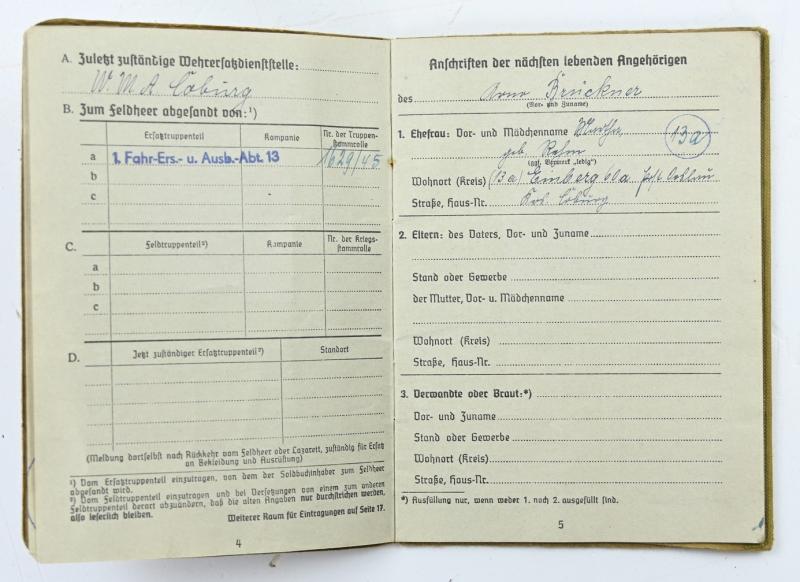 A. Zuletzt zuständige Wehrersatzdienststelle:
W. M. A. Coburg
B. Zum Feldheer abgesandt von:¹)
Ersatztruppenteil Kompanie Nr. der Truppen-
stammrolle
a 1. Fahr-Ers.- u. Ausb.-Abt. 13 1629/45
b
c
C. Feldtruppenteil²) Kompanie Nr. der Kriegs-
stammrolle
a
b
c
D. Jetzt zuständiger Ersatztruppenteil²) Standort
(Meldung dortselbst nach Rückkehr vom Feldheer oder Lazarett, zuständig für Ersatz
an Bekleidung und Ausrüstung)
¹) Vom Ersatztruppenteil einzutragen, von dem der Soldbuchinhaber zum Feldheer
abgesandt wird.
²) Vom Feldtruppenteil einzutragen und bei Versetzungen von einem zum anderen
Feldtruppenteil derart abzuändern, daß die alten Angaben nur durchstrichen werden,
also leserlich bleiben.
Weiterer Raum für Eintragungen auf Seite 17.
4
Anschriften der nächsten lebenden Angehörigen
des Arno Brückner
(Vor- und Zuname)
1. Ehefrau: Vor- und Mädchenname Martha, 13a
geb. Rehm
(ggf. Vermerk „ledig“)
Wohnort (Kreis) (13a) Einberg 60a Post Oeslau
Straße, Haus-Nr. Krs. Coburg
2. Eltern: des Vaters, Vor- und Zuname
Stand oder Gewerbe
der Mutter, Vor- u. Mädchenname
Wohnort (Kreis)
Straße, Haus-Nr.
3. Verwandte oder Braut:*)
Vor- und Zuname
Stand oder Gewerbe
Wohnort (Kreis)
Straße, Haus-Nr.
*) Ausfüllung nur, wenn weder 1. noch 2. ausgefüllt sind.
5